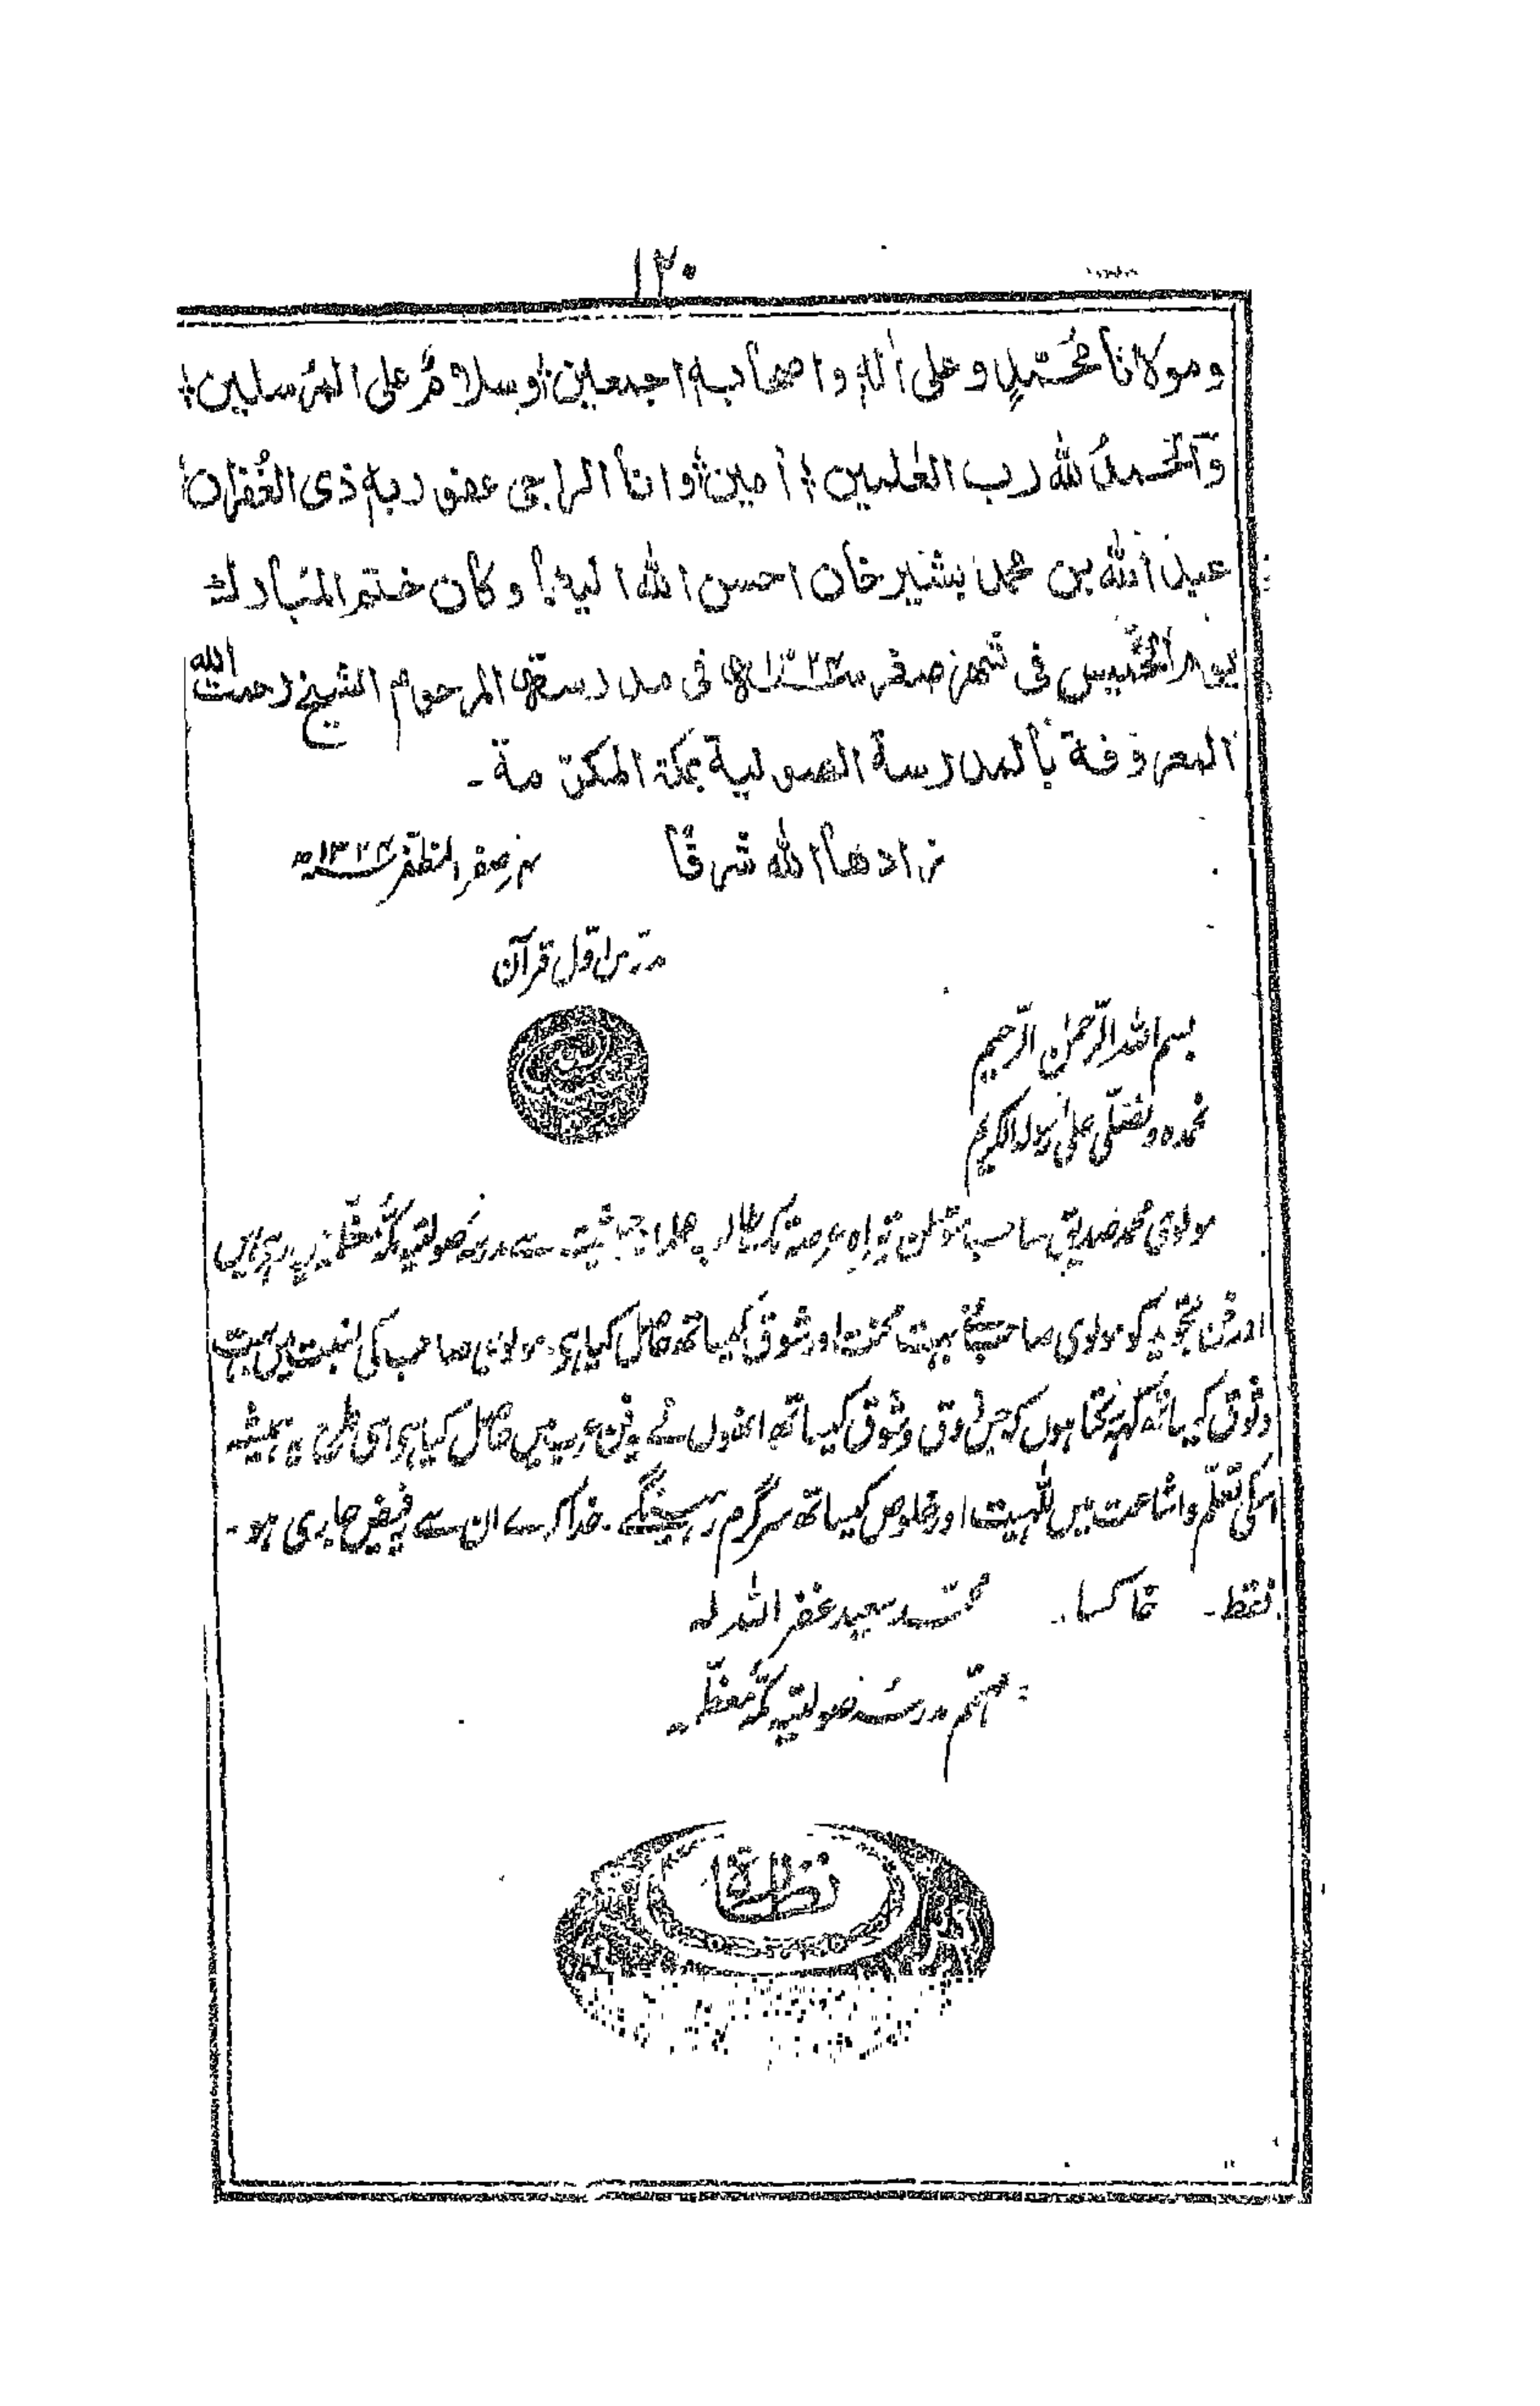 ١٢٠
ومولانا مُحَمَّدٍ وعلى اٰله واصحابه اجمعين وسلامٌ على المُرسلين
وَالْحَمدُ لله رب العٰلمين اٰمين وانا الراجى عفو ربه ذى الغُفران
عبد الله بن محمد بشير خان احسن الله اليه وكان ختم المُبارك
يوم الخَميس فى شهر صفر سنة ١٣٢٤ھ فى مدرسة المرحوم الشيخ رحمت الله
المعروفة بالمدرسة الصولية بمكة المكرّمة۔
زادها الله شرفًا
صفر المظفّر سنہ ١٣٢٤ھ
مدرّس اوّل قرآن
بسم اللہ الرّحمٰن الرّحیم
نحمدہ ونصلّی علیٰ رسولہ الکریم
مولوی محمد صدیق صاحب عرصہ تک طالب حیثیت سے مدرسہ صولتیہ مکّہ معظّمہ میں رہی ہیں
اور فن تجوید کو مولوی صاحب نے بہت محنت اور شوق کیساتھ حاصل کیا ہی۔ مولوی صاحب کی نسبت میں بہت
وثوق کیساتھ کہہ سکتا ہوں کہ جس ذوق وشوق کیساتھ انھوں نے یہ فن عرب میں حاصل کیا ہی اسی طرح یہ ہمیشہ
اسکی تعلّم واشاعت میں للّٰہیت اور خلوص کیساتھ سرگرم رہینگے۔ خدا کرے ان سے یہ فیض جاری ہو۔
فقط۔ خاکسار۔ محمّد سعید غفر اللہ لہ
مہتمم مدرسہ صولتیہ مکّہ معظّمہ